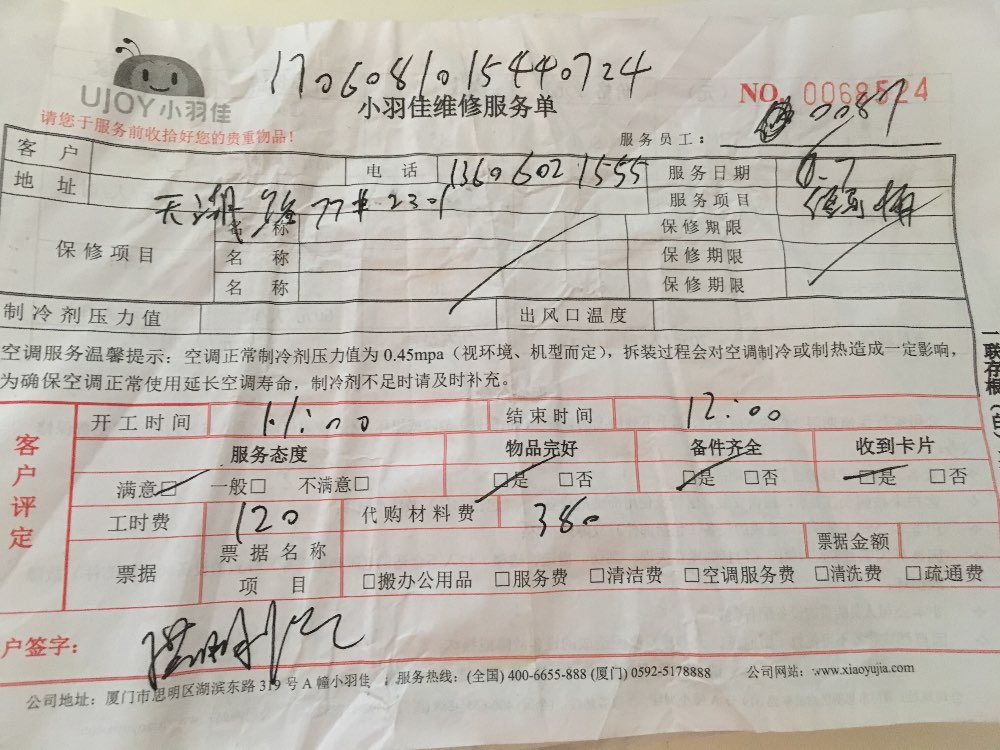 17060810154407​24
UJOY小羽佳
小羽佳维修服务单
NO. 0068524
请您于服务前收拾好您的贵重物品！
服务员工： 0087
客户 电话 13606021555 服务日期 6.7
地址 77#2301 服务项目
保修项目 名称 保修期限
名称 保修期限
名称 保修期限
制冷剂压力值 出风口温度
空调服务温馨提示：空调正常制冷剂压力值为 0.45mpa（视环境、机型而定），拆装过程会对空调制冷或制热造成一定影响，
为确保空调正常使用延长空调寿命，制冷剂不足时请及时补充。
一联存根（白
客户评定
开工时间 11:00 结束时间 12:00
服务态度 物品完好 备件齐全 收到卡片
满意□ 一般□ 不满意□ □是 □否 □是 □否 □是 □否
工时费 120 代购材料费 380
票据 票据名称 票据金额
项目 □搬办公用品 □服务费 □清洁费 □空调服务费 □清洗费 □疏通费
户签字：
公司地址：厦门市思明区湖滨东路 319 号 A 幢小羽佳 ；服务热线：(全国) 400-6655-888 (厦门) 0592-5178888 公司网站：www.xiaoyujia.com